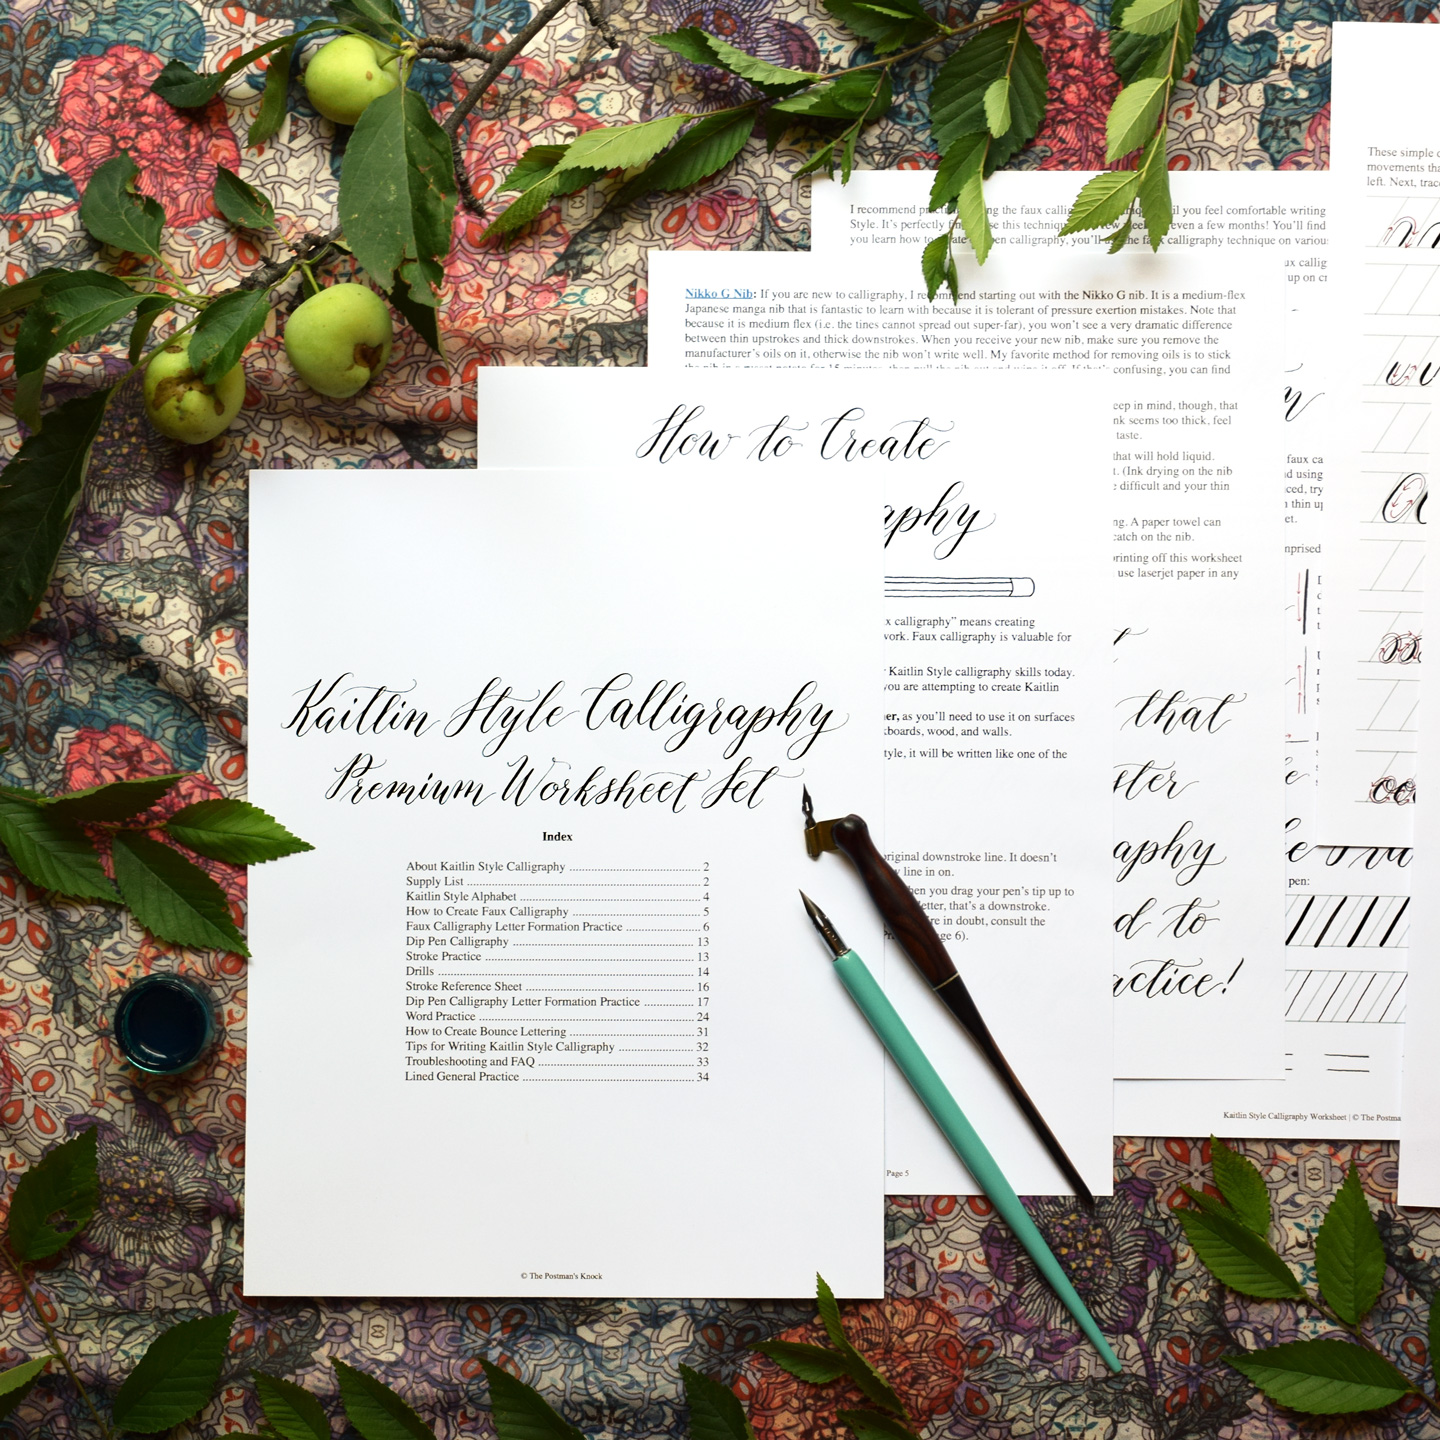 Kaitlin Style Calligraphy
Premium Worksheet Set
Index
About Kaitlin Style Calligraphy 2
Supply List 2
Kaitlin Style Alphabet 4
How to Create Faux Calligraphy 5
Faux Calligraphy Letter Formation Practice 6
Dip Pen Calligraphy 13
Stroke Practice 13
Drills 14
Stroke Reference Sheet 16
Dip Pen Calligraphy Letter Formation Practice 17
Word Practice 24
How to Create Bounce Lettering 31
Tips for Writing Kaitlin Style Calligraphy 32
Troubleshooting and FAQ 33
Lined General Practice 34
© The Postman's Knock
How to Create
aphy
x calligraphy” means creating
work. Faux calligraphy is valuable for
Kaitlin Style calligraphy skills today.
you are attempting to create Kaitlin
er, as you’ll need to use it on surfaces
kboards, wood, and walls.
tyle, it will be written like one of the
original downstroke line. It doesn’t
line in on.
hen you drag your pen’s tip up to
letter, that’s a downstroke.
're in doubt, consult the
age 6).
Page 5
Nikko G Nib: If you are new to calligraphy, I recommend starting out with the Nikko G nib. It is a medium-flex
Japanese manga nib that is fantastic to learn with because it is tolerant of pressure exertion mistakes. Note that
because it is medium flex (i.e. the tines cannot spread out super-far), you won’t see a very dramatic difference
between thin upstrokes and thick downstrokes. When you receive your new nib, make sure you remove the
manufacturer’s oils on it, otherwise the nib won’t write well. My favorite method for removing oils is to stick
confusing, you can find
eep in mind, though, that
nk seems too thick, feel
taste.
that will hold liquid.
t. (Ink drying on the nib
difficult and your thin
ng. A paper towel can
catch on the nib.
printing off this worksheet
use laserjet paper in any
that
ster
aphy
d to
actice!
I recommend the faux il you feel comfortable writing
Style. It’s perfectly use this technique few even a few months! You’ll find
you learn how to pen calligraphy, you’ll the faux calligraphy technique on
ux
up on
faux
d using
ced, try
thin
et.
mprised
pen:
Kaitlin Style Calligraphy Worksheet | © The Postma
These simple
movements tha
left. Next, trac